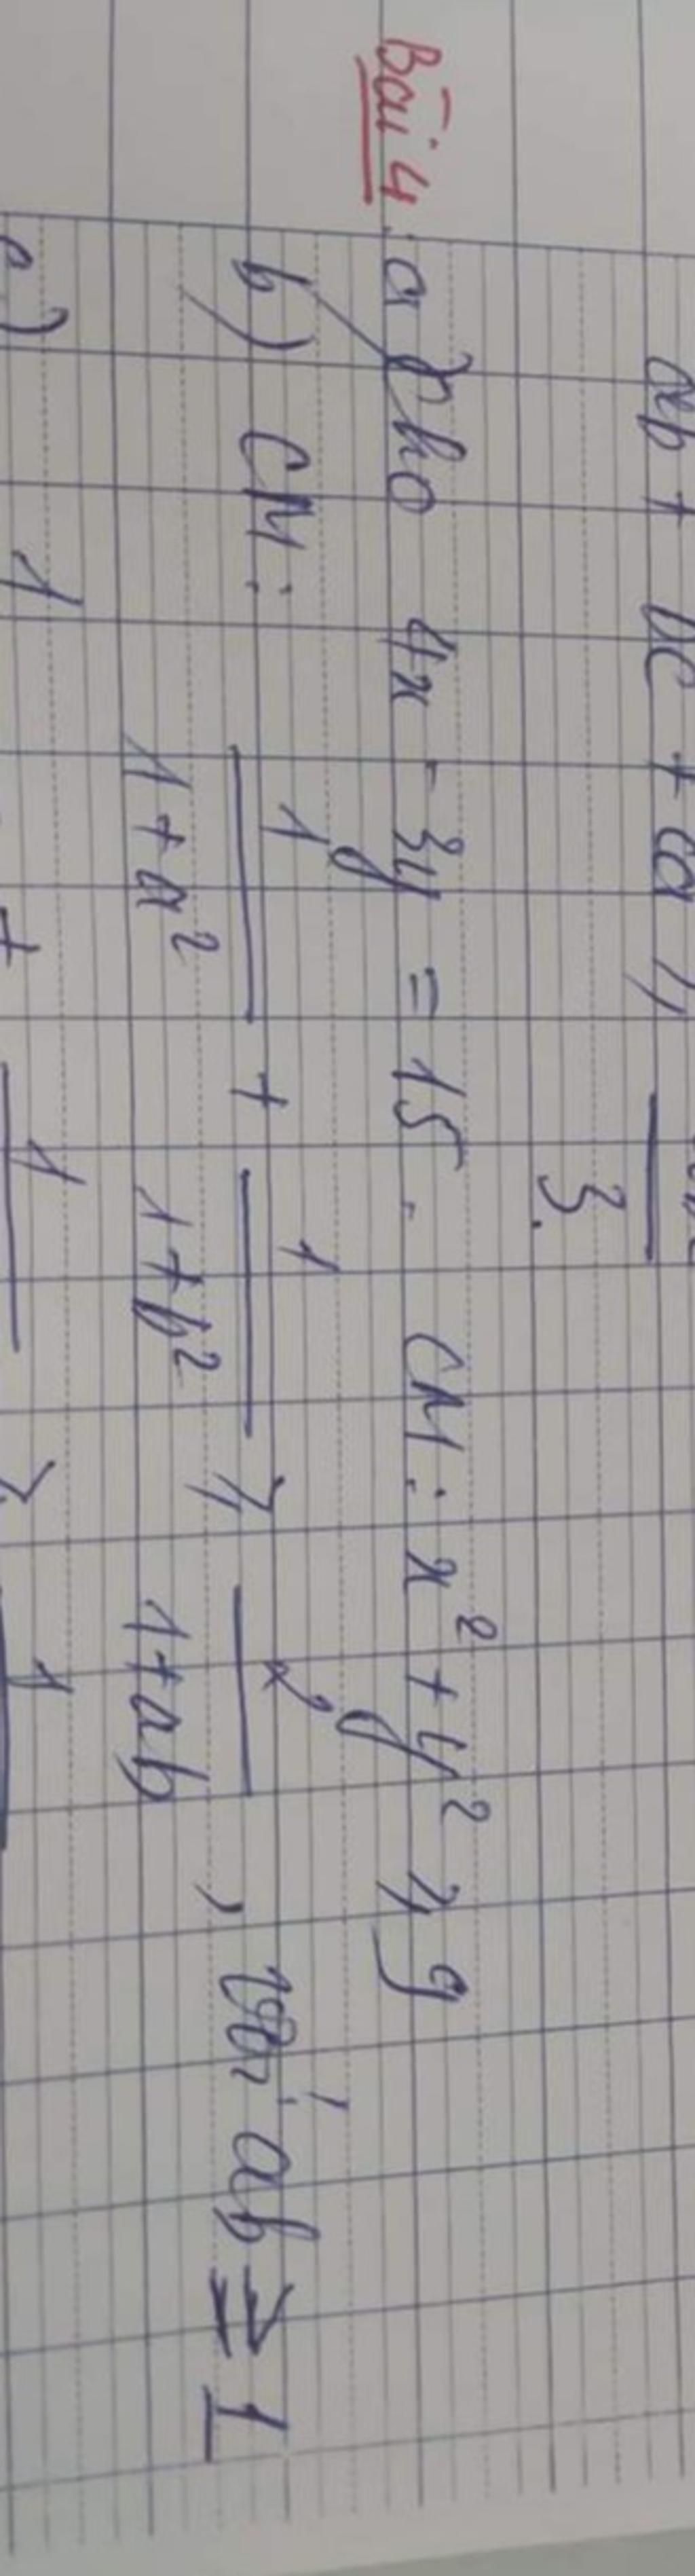 ab + bc + ca ≥
3.
Bài 4: a) Cho 4x - 3y = 15. CM: x² + y² ≥ 9
b) CM: 1/(1+a²) + 1/(1+b²) ≥ 2/(1+ab), với ab ≥ 1
c) 1 + 1 ≥ 1